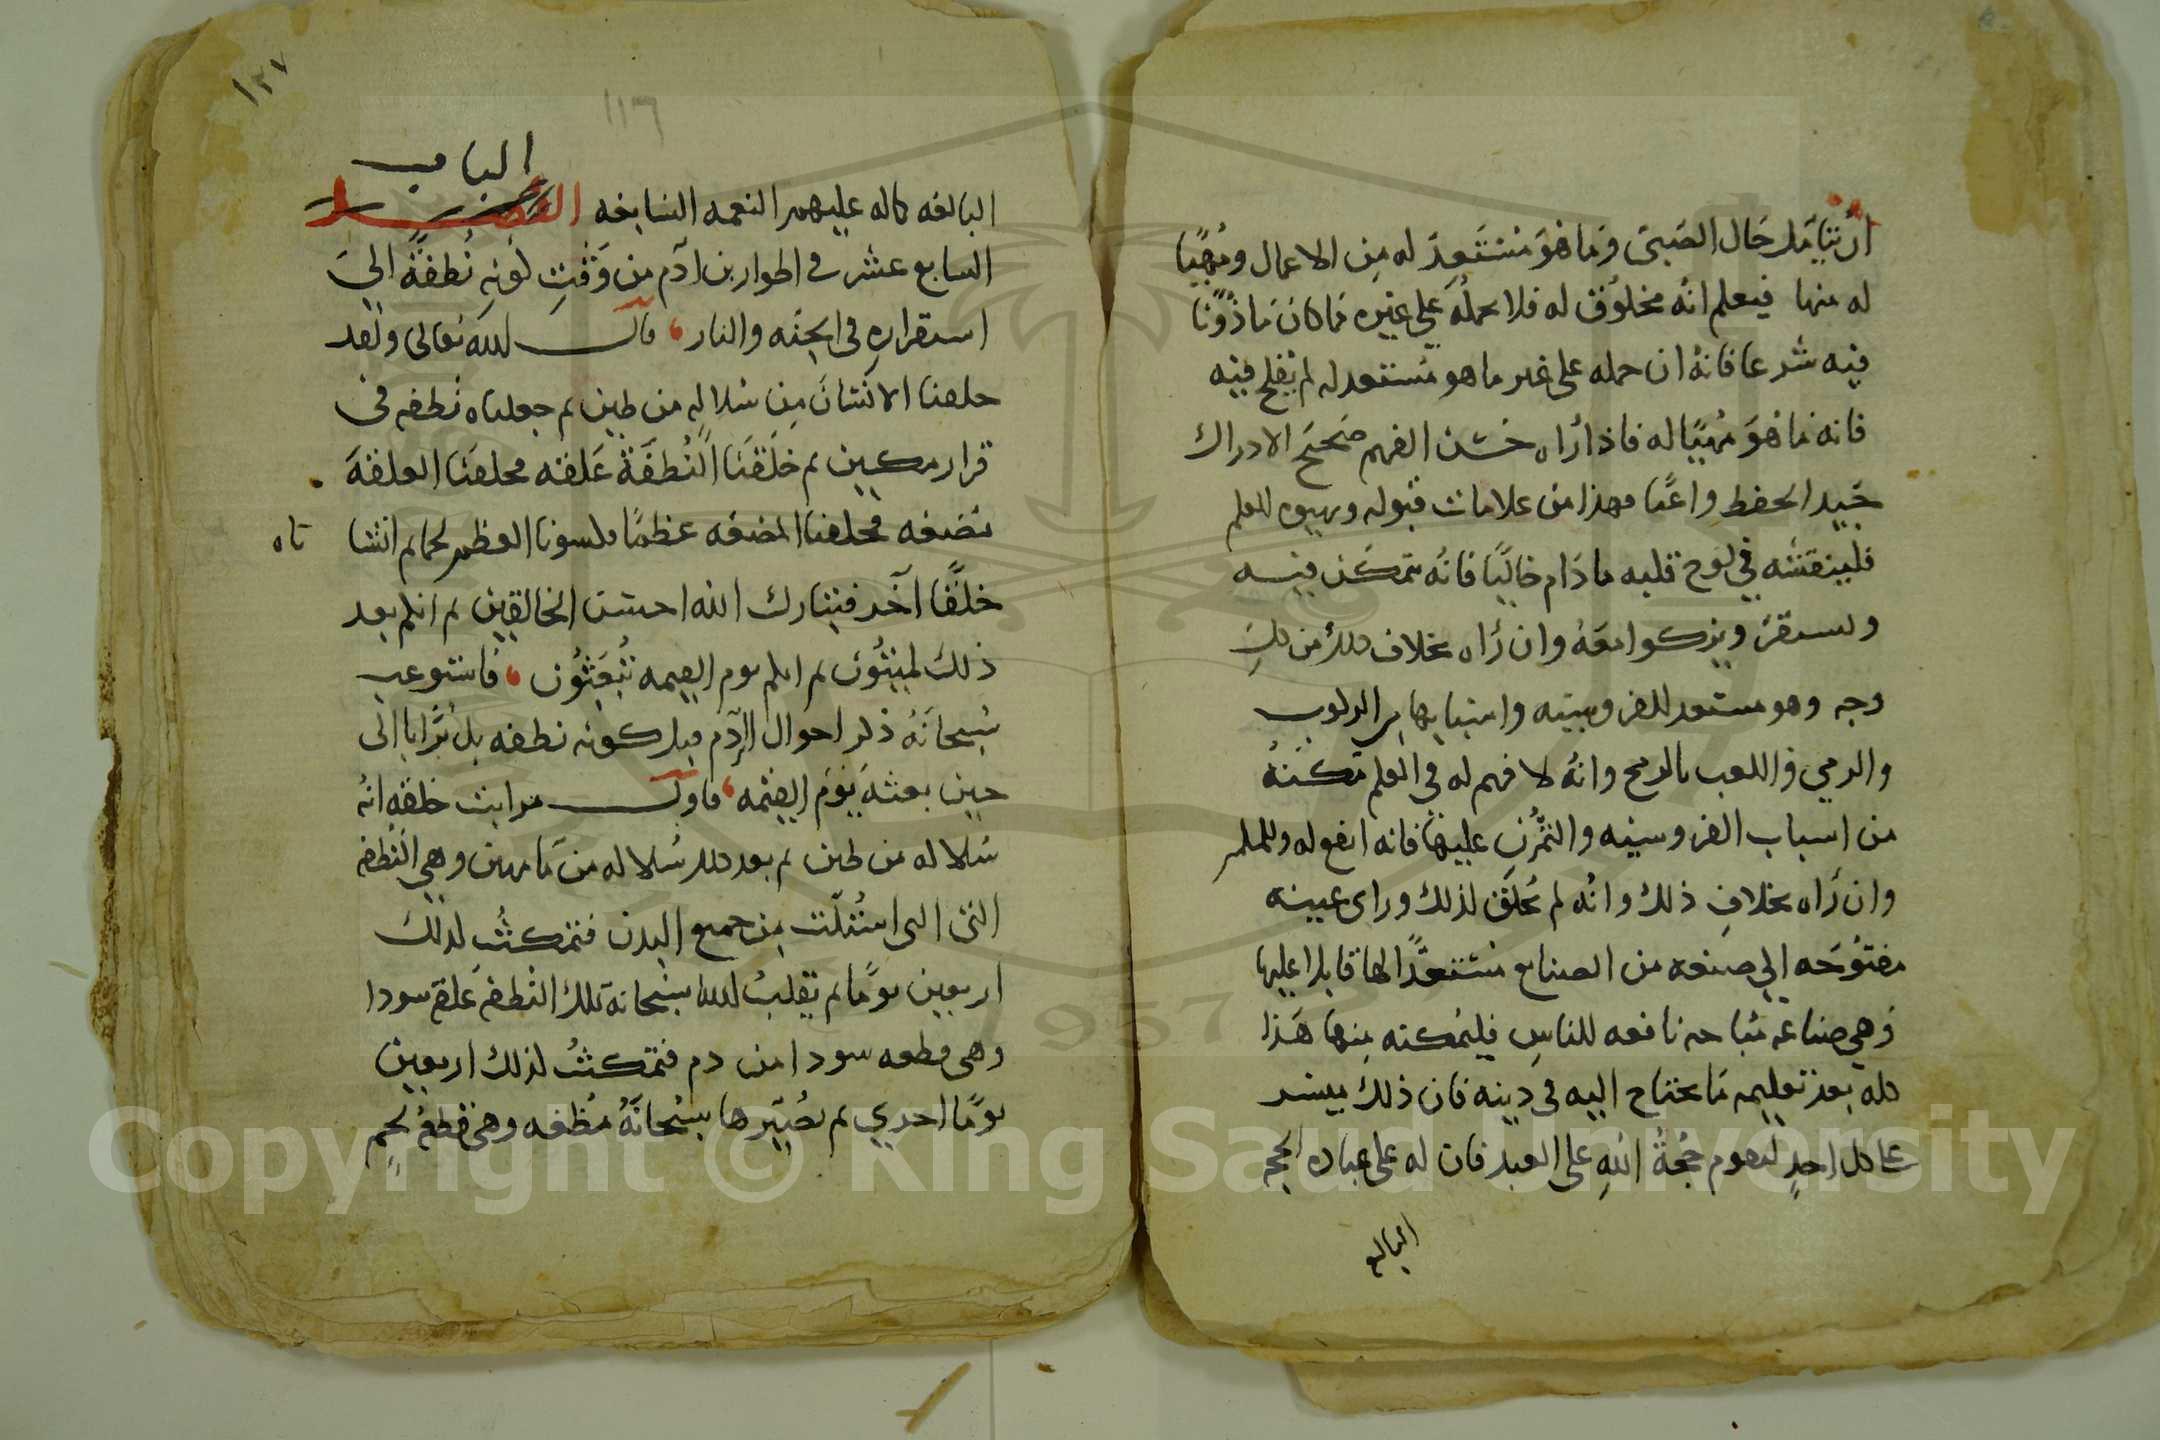 ان يتأمل حال الصبي وما هو مستعد له من الاعمال ومهيأ
له منها فيعلم انه مخلوق له فلا يحمله علي غيره ما كان ماذونا
فيه شرعا فانه ان حمله على غير ما هو مستعد له لم يفلح فيه
فاته ما هو مهيا له فاذا رأاه حسن الفهم صحيح الادراك
جيد الحفظ واعيا فهذا من علامات قبوله وتهيوه للعلم
فلينقشه في لوح قلبه ما دام خاليا فانه يتمكن فيه
ويستقر ويزكوا معه وان رأاه بخلاف ذلك من كل
وجه وهو مستعد للفروسيه واسبابها من الركوب
والرمي واللعب بالرمح وانه لا فهم له في العلم مكنه
من اسباب الفروسيه والتمرن عليها فانه انفع له وللمسلمين
وان رأاه بخلاف ذلك وانه لم يخلق لذلك وراى عينه
مفتوحه الي صنعه من الصنايع مستعدا لها قابلا عليها
وهي صناعه مباحه نافعه للناس فليمكنه منها هذا
كله بعد تعليمه ما يحتاج اليه في دينه فان ذلك ييسر
على كل احد لتقوم حجة الله على العبد فان له على عباده الحجه
البالغه
١٢٧
١١٦
الباب
البالغه كما له عليهم النعمه السابغه الفصل
السابع عشر في اطوار بن ادم من وقت كونه نطفة الي
استقراره في الجنه والنار قال الله تعالى ولقد
خلقنا الانسان من سلاله من طين ثم جعلناه نطفه في
قرار مكين ثم خلقنا النطفة علقه فخلقنا العلقة
مضغه فخلقنا المضغه عظما فكسونا العظم لحما ثم انشا ناه
خلقا آخر فتبارك الله احسن الخالقين ثم انكم بعد
ذلك لميتون ثم انكم يوم القيمه تبعثون فاستوعب
سبحانه ذكر احوال ابن آدم قبل كونه نطفه بل ترابا الى
حين بعثه يوم القيمه فاول مراتب خلقه انه
سلاله من طين ثم بعد ذلك سلاله من ما مهين وهي النطفه
التي استلت من جميع البدن فتمكث كذلك
اربعين يوما ثم يقلب الله سبحانه تلك النطفه علقة سودا
وهى قطعه سودا من دم فتمكث كذلك اربعين
يوما اخري ثم يصيرها سبحانه مضغه وهى قطعة لحم
Copyright © King Saud University
1957